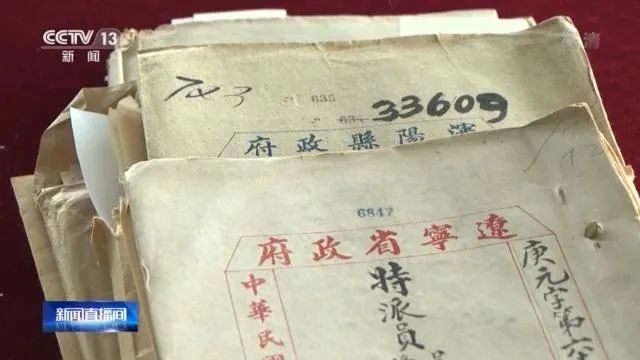 CCTV 13
新闻
743
635
634
33609
府政縣陽瀋
6847
府政省寧遼
中華民國
特派員
庚元字第六
新闻直播间